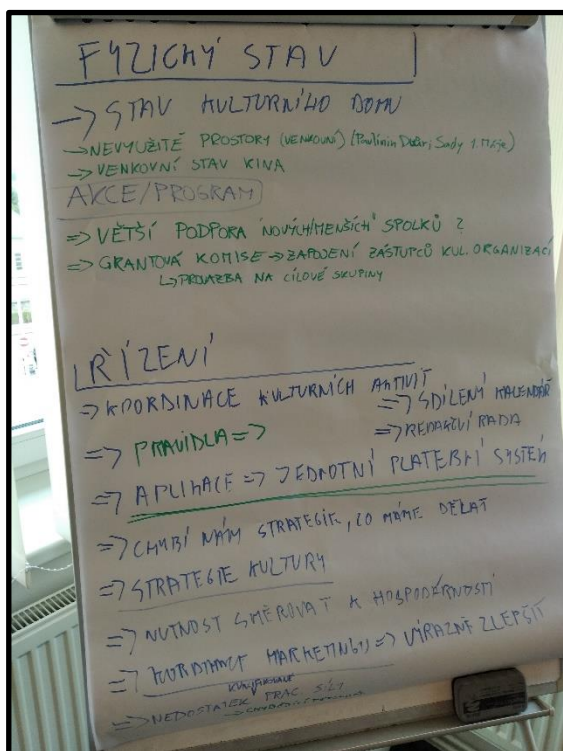 FYZICKÝ STAV
→ STAV KULTURNÍHO DOMU
→ NEVYUŽITÉ PROSTORY (VENKOVNÍ) (Paulinin Dvůr, Sady 1. Máje)
→ VENKOVNÍ STAV KINA
AKCE/PROGRAM
⇒ VĚTŠÍ PODPORA "NOVÝCH/MENŠÍCH" SPOLKŮ ?
⇒ GRANTOVÁ KOMISE → ZAPOJENÍ ZÁSTUPCŮ KUL. ORGANIZACÍ
↳ PROVAZBA NA CÍLOVÉ SKUPINY
ŘÍZENÍ
⇒ KOORDINACE KULTURNÍCH AKTIVIT
⇒ SDÍLENÝ KALENDÁŘ
⇒ PRAVIDLA ⇒
⇒ REDAKČNÍ RADA
⇒ APLIKACE ⇒ JEDNOTNÍ PLATEBNÍ SYSTÉM
⇒ CHYBÍ NÁM STRATEGIE, CO MÁME DĚLAT
⇒ STRATEGIE KULTURY
⇒ NUTNOST SMĚROVAT K HOSPODÁRNOSTI
⇒ MARKETINGU ⇒ VÝRAZNĚ ZLEPŠIT
⇒ NEDOSTATEK PRAC. SÍLY